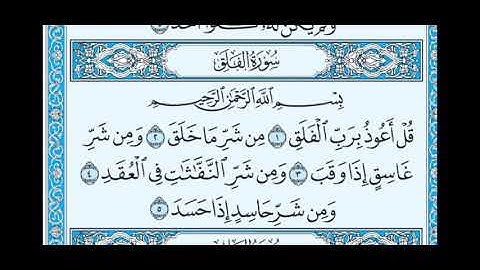 سُورَةُ الْفَلَقِ
بِسْمِ اللَّهِ الرَّحْمَٰنِ الرَّحِيمِ
قُلْ أَعُوذُ بِرَبِّ الْفَلَقِ ١ مِن شَرِّ مَا خَلَقَ ٢ وَمِن شَرِّ
غَاسِقٍ إِذَا وَقَبَ ٣ وَمِن شَرِّ النَّفَّاثَاتِ فِي الْعُقَدِ ٤
وَمِن شَرِّ حَاسِدٍ إِذَا حَسَدَ ٥